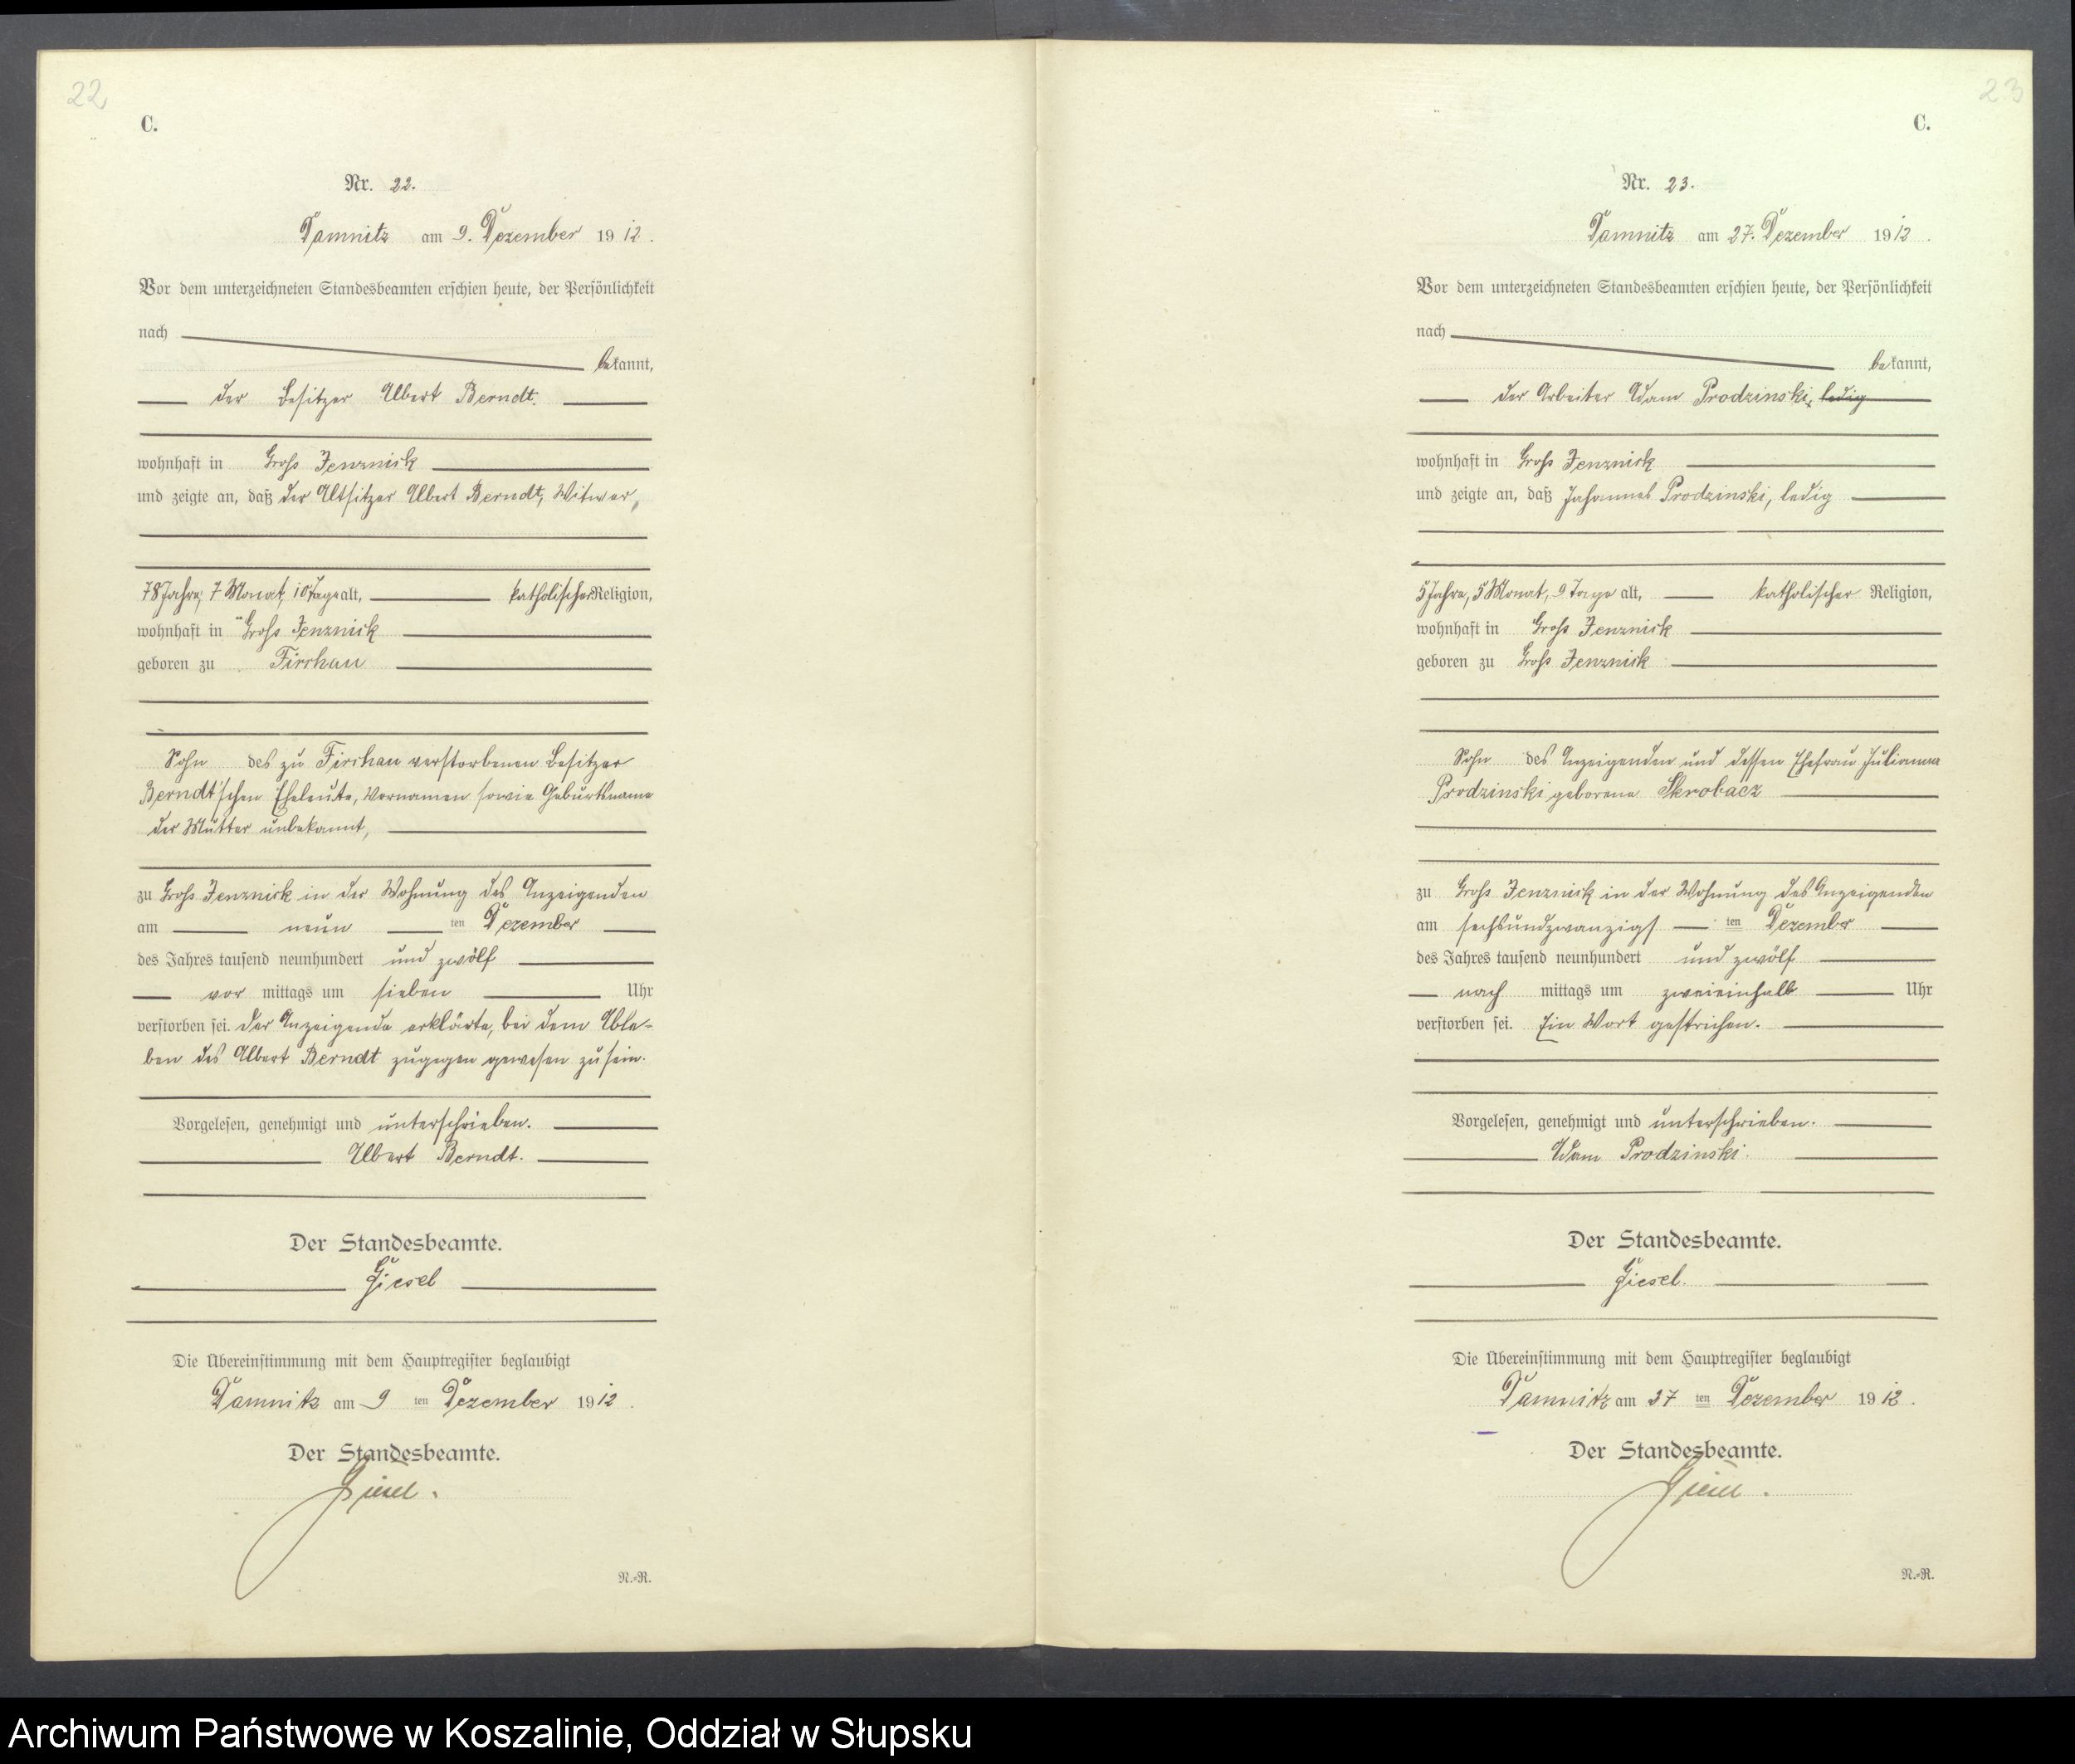 22
C.
Nr. 22.
Damnitz am 9. Dezember 1912.
Vor dem unterzeichneten Standesbeamten erschien heute, der Persönlichkeit
nach
bekannt,
der Besitzer Albert Berndt.
wohnhaft in Groß Jenznick
und zeigte an, daß der Altsitzer Albert Berndt, Witwer,
78 Jahre, 7 Monat, 10 Tage alt, katholischer Religion,
wohnhaft in Groß Jenznick
geboren zu Firchau
Sohn des zu Firchau verstorbenen Besitzer
Berndt'schen Eheleute, Vornamen sowie Geburtsname
der Mutter unbekannt,
zu Groß Jenznick in der Wohnung des Anzeigenden
am neun ten Dezember
des Jahres tausend neunhundert und zwölf
vor mittags um sieben Uhr
verstorben sei. Der Anzeigende erklärte, bei dem Able-
ben des Albert Berndt zugegen gewesen zu sein.
Vorgelesen, genehmigt und unterschrieben.
Albert Berndt.
Der Standesbeamte.
Giesel
Die Übereinstimmung mit dem Hauptregister beglaubigt
Damnitz am 9 ten Dezember 1912.
Der Standesbeamte.
Giesel.
N.-R.
23
C.
Nr. 23.
Damnitz am 27. Dezember 1912.
Vor dem unterzeichneten Standesbeamten erschien heute, der Persönlichkeit
nach
bekannt,
der Arbeiter Adam Prodzinski, ledig
wohnhaft in Groß Jenznick
und zeigte an, daß Johannes Prodzinski, ledig
5 Jahre, 5 Monat, 9 Tage alt, katholischer Religion,
wohnhaft in Groß Jenznick
geboren zu Groß Jenznick
Sohn des Anzeigenden und dessen Ehefrau Julianna
Prodzinski geborene Skrobacz
zu Groß Jenznick in der Wohnung des Anzeigenden
am sechsundzwanzigs ten Dezember
des Jahres tausend neunhundert und zwölf
nach mittags um zweieinhalb Uhr
verstorben sei. Ein Wort gestrichen.
Vorgelesen, genehmigt und unterschrieben.
Adam Prodzinski.
Der Standesbeamte.
Giesel.
Die Übereinstimmung mit dem Hauptregister beglaubigt
Damnitz am 27 ten Dezember 1912.
Der Standesbeamte.
Giesel.
N.-R.
Archiwum Państwowe w Koszalinie, Oddział w Słupsku